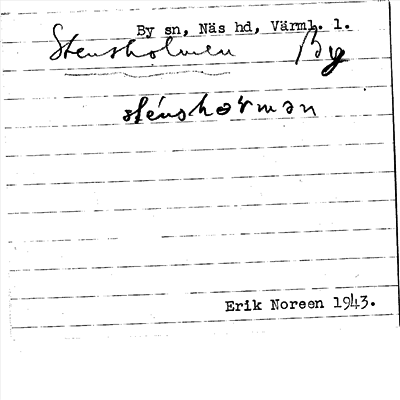 By sn, Näs hd, Värml. l.
Stensholmen By
sténshoɽmən
Erik Noreen 1943.